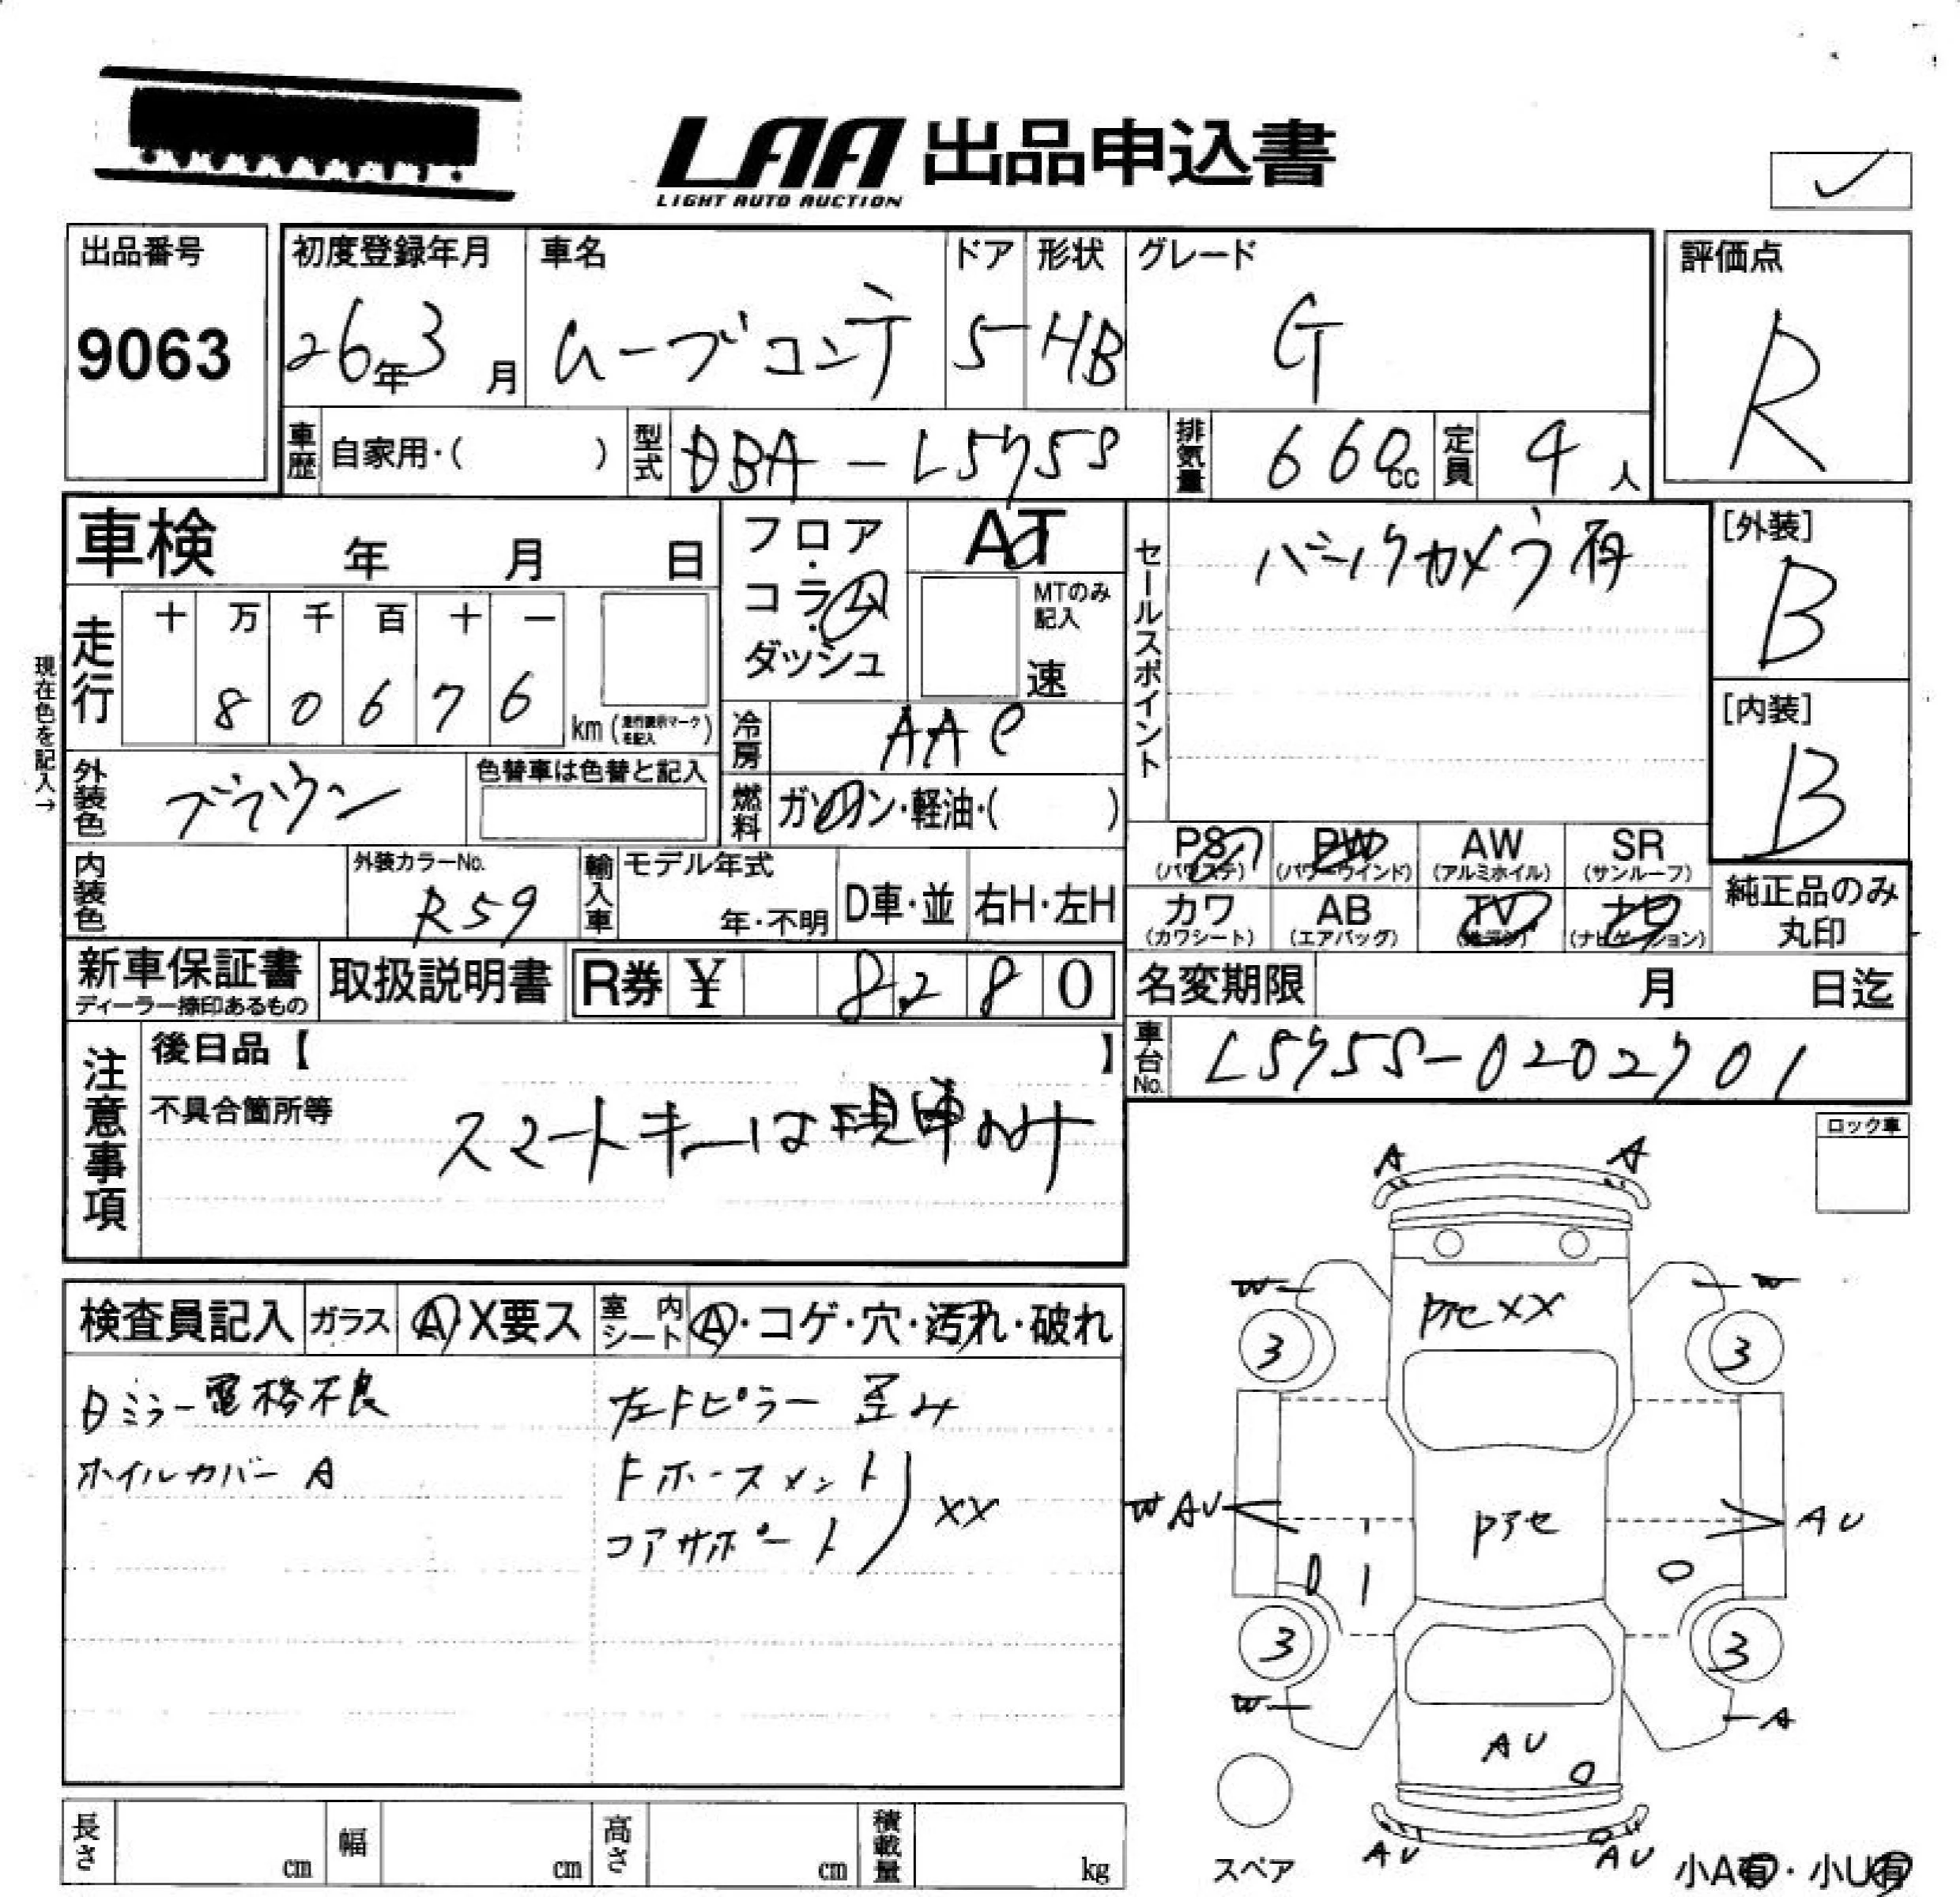 LAA 出品申込書
LIGHT AUTO AUCTION
出品番号
9063
初度登録年月
26年3月
車名
ムーブコンテ
ドア
5
形状
HB
グレード
G
評価点
R
車歴
自家用・( )
型式
DBA-L575S
排気量
660cc
定員
4人
車検 年 月 日
フロア・コラム・ダッシュ
AT
MTのみ記入
速
セールスポイント
バックカメラ有
[外装]
B
[内装]
B
現在色を記入→
走行
十 万 千 百 十 一
8 0 6 7 6
km (走行表示マークを記入)
冷房
AAC
外装色
ブラウン
色替車は色替と記入
燃料
ガソリン・軽油・( )
PS
(パワステ)
PW
(パワーウインド)
AW
(アルミホイル)
SR
(サンルーフ)
内装色
外装カラーNo.
R59
輸入車
モデル年式
年・不明
D車・並
右H・左H
カワ
(カワシート)
AB
(エアバッグ)
TV
ナビ
(ナビゲーション)
純正品のみ
丸印
新車保証書
ディーラー捺印あるもの
取扱説明書
R券 ¥ 8,280
名変期限 月 日迄
注意事項
後日品【 】
車台No.
L575S-0202701
不具合箇所等
スマートキーは現車のみ
ロック車
検査員記入
ガラス
A X要ス
室内シート
A・コゲ・穴・汚れ・破れ
ミラー電格不良
ホイルカバー A
左Fピラー 歪み
Fホースメント
コアサポート
XX
A
A
W
PアセXX
W
3
3
W AU
Pアセ
AU
3
3
W
A
AU
AU
AU
スペア
小A有・小U有
長さ cm
幅 cm
高さ cm
積載量 kg